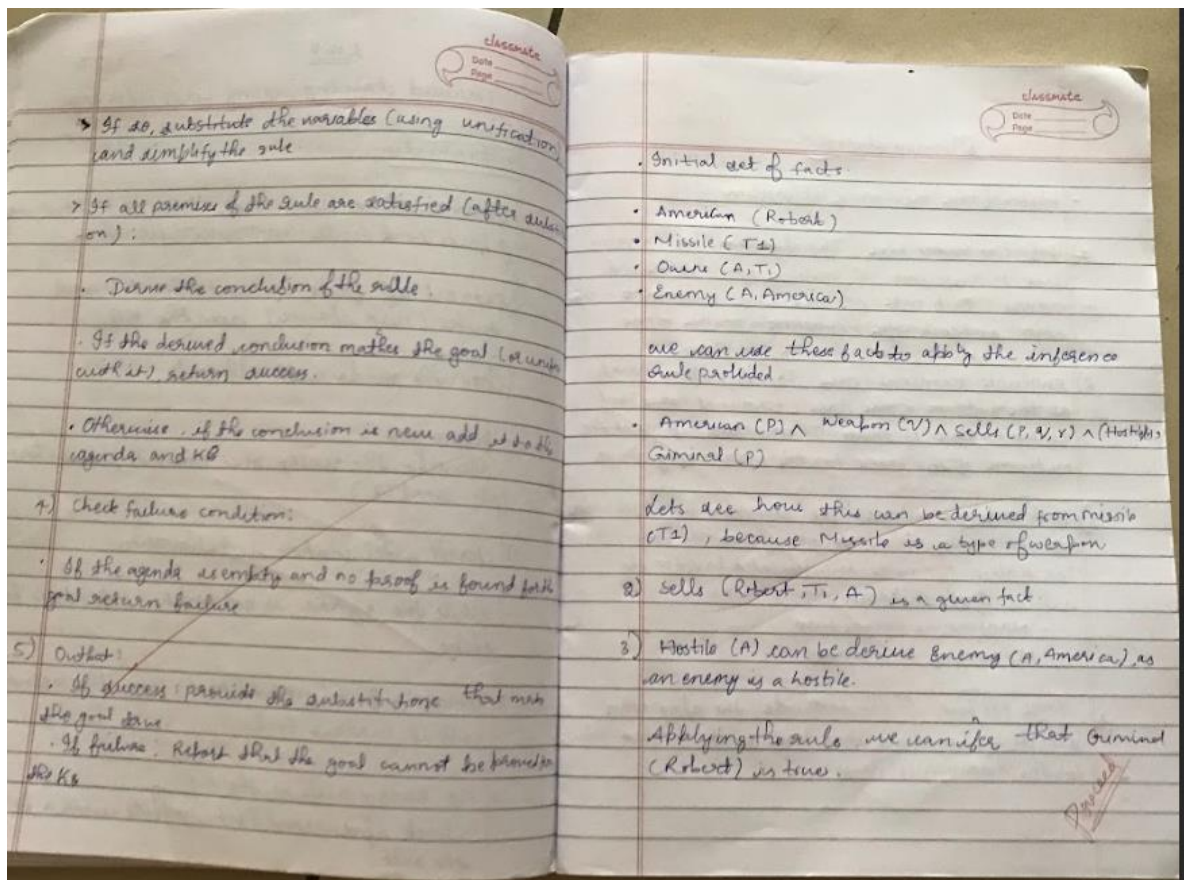 classmate
Date
Page
> If so, substitute the variables (using unification)
and simplify the rule
> If all premises of the rule are satisfied (after
on):
. Derive the conclusion of the rule
. If the derived conclusion mathes the goal (or
with it), return success.
. Otherwise, if the conclusion is new add it to the
agenda and KB
4) Check failure condition:
. If the agenda is empty and no proof is found for the
goal return failure
5) Output:
. If success: provide the substitutions that
the goal true
. If failure: Report that the goal cannot be proved
the KB
classmate
Date
Page
. Initial set of facts.
. American (Robert)
. Missile (T1)
. Owns (A, T1)
. Enemy (A, America)
we can use these facts to apply the inference
rule provided.
. American (P) ∧ Weapon (V) ∧ Sells (P, q, r) ∧
Criminal (P)
Lets see how this can be derived from
(T1), because Missile is a type of weapon
2) Sells (Robert, T1, A) is a given fact.
3) Hostile (A) can be derive Enemy (A, America), as
an enemy is a hostile.
Applying the rule, we can infer that Criminal
(Robert) is true.